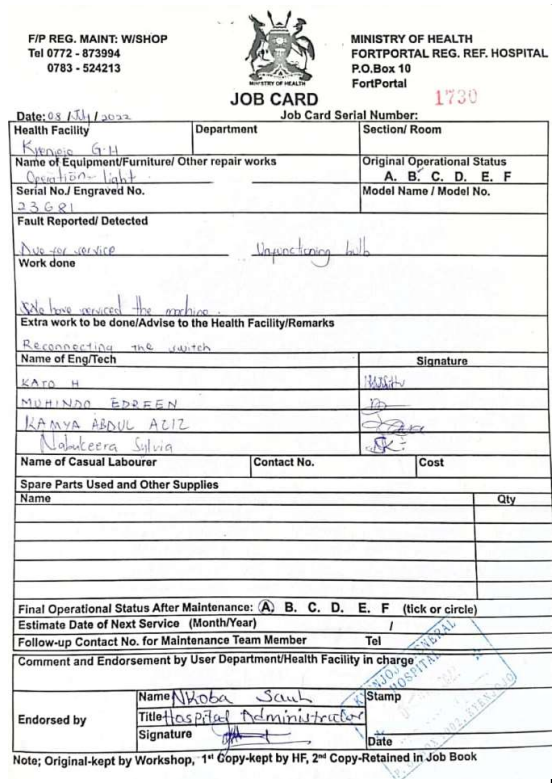 F/P REG. MAINT: W/SHOP
Tel 0772 - 873994
0783 - 524213
MINISTRY OF HEALTH
MINISTRY OF HEALTH
FORTPORTAL REG. REF. HOSPITAL
P.O.Box 10
FortPortal
JOB CARD
1730
Date: 08 / July / 2022
Job Card Serial Number:
Health Facility Department Section/ Room
Kyenjojo G.H
Name of Equipment/Furniture/ Other repair works Original Operational Status
Operation light A. B. C. D. E. F
Serial No./ Engraved No. Model Name / Model No.
23GR1
Fault Reported/ Detected
Due for service Unfunctioning bulb
Work done
We have serviced the machine.
Extra work to be done/Advise to the Health Facility/Remarks
Reconnecting the switch
Name of Eng/Tech Signature
KATO H
MUHINDO EDREEN
KAMYA ABDUL AZIZ
Nabukeera Sylvia
Name of Casual Labourer Contact No. Cost
Spare Parts Used and Other Supplies
Name Qty
Final Operational Status After Maintenance: A. B. C. D. E. F (tick or circle)
Estimate Date of Next Service (Month/Year) /
Follow-up Contact No. for Maintenance Team Member Tel
Comment and Endorsement by User Department/Health Facility in charge
Endorsed by
Name Nkoba Saul
Title Hospital Administrator
Signature
Stamp
KYENJOJO GENERAL HOSPITAL
Date
Note; Original-kept by Workshop, 1st Copy-kept by HF, 2nd Copy-Retained in Job Book